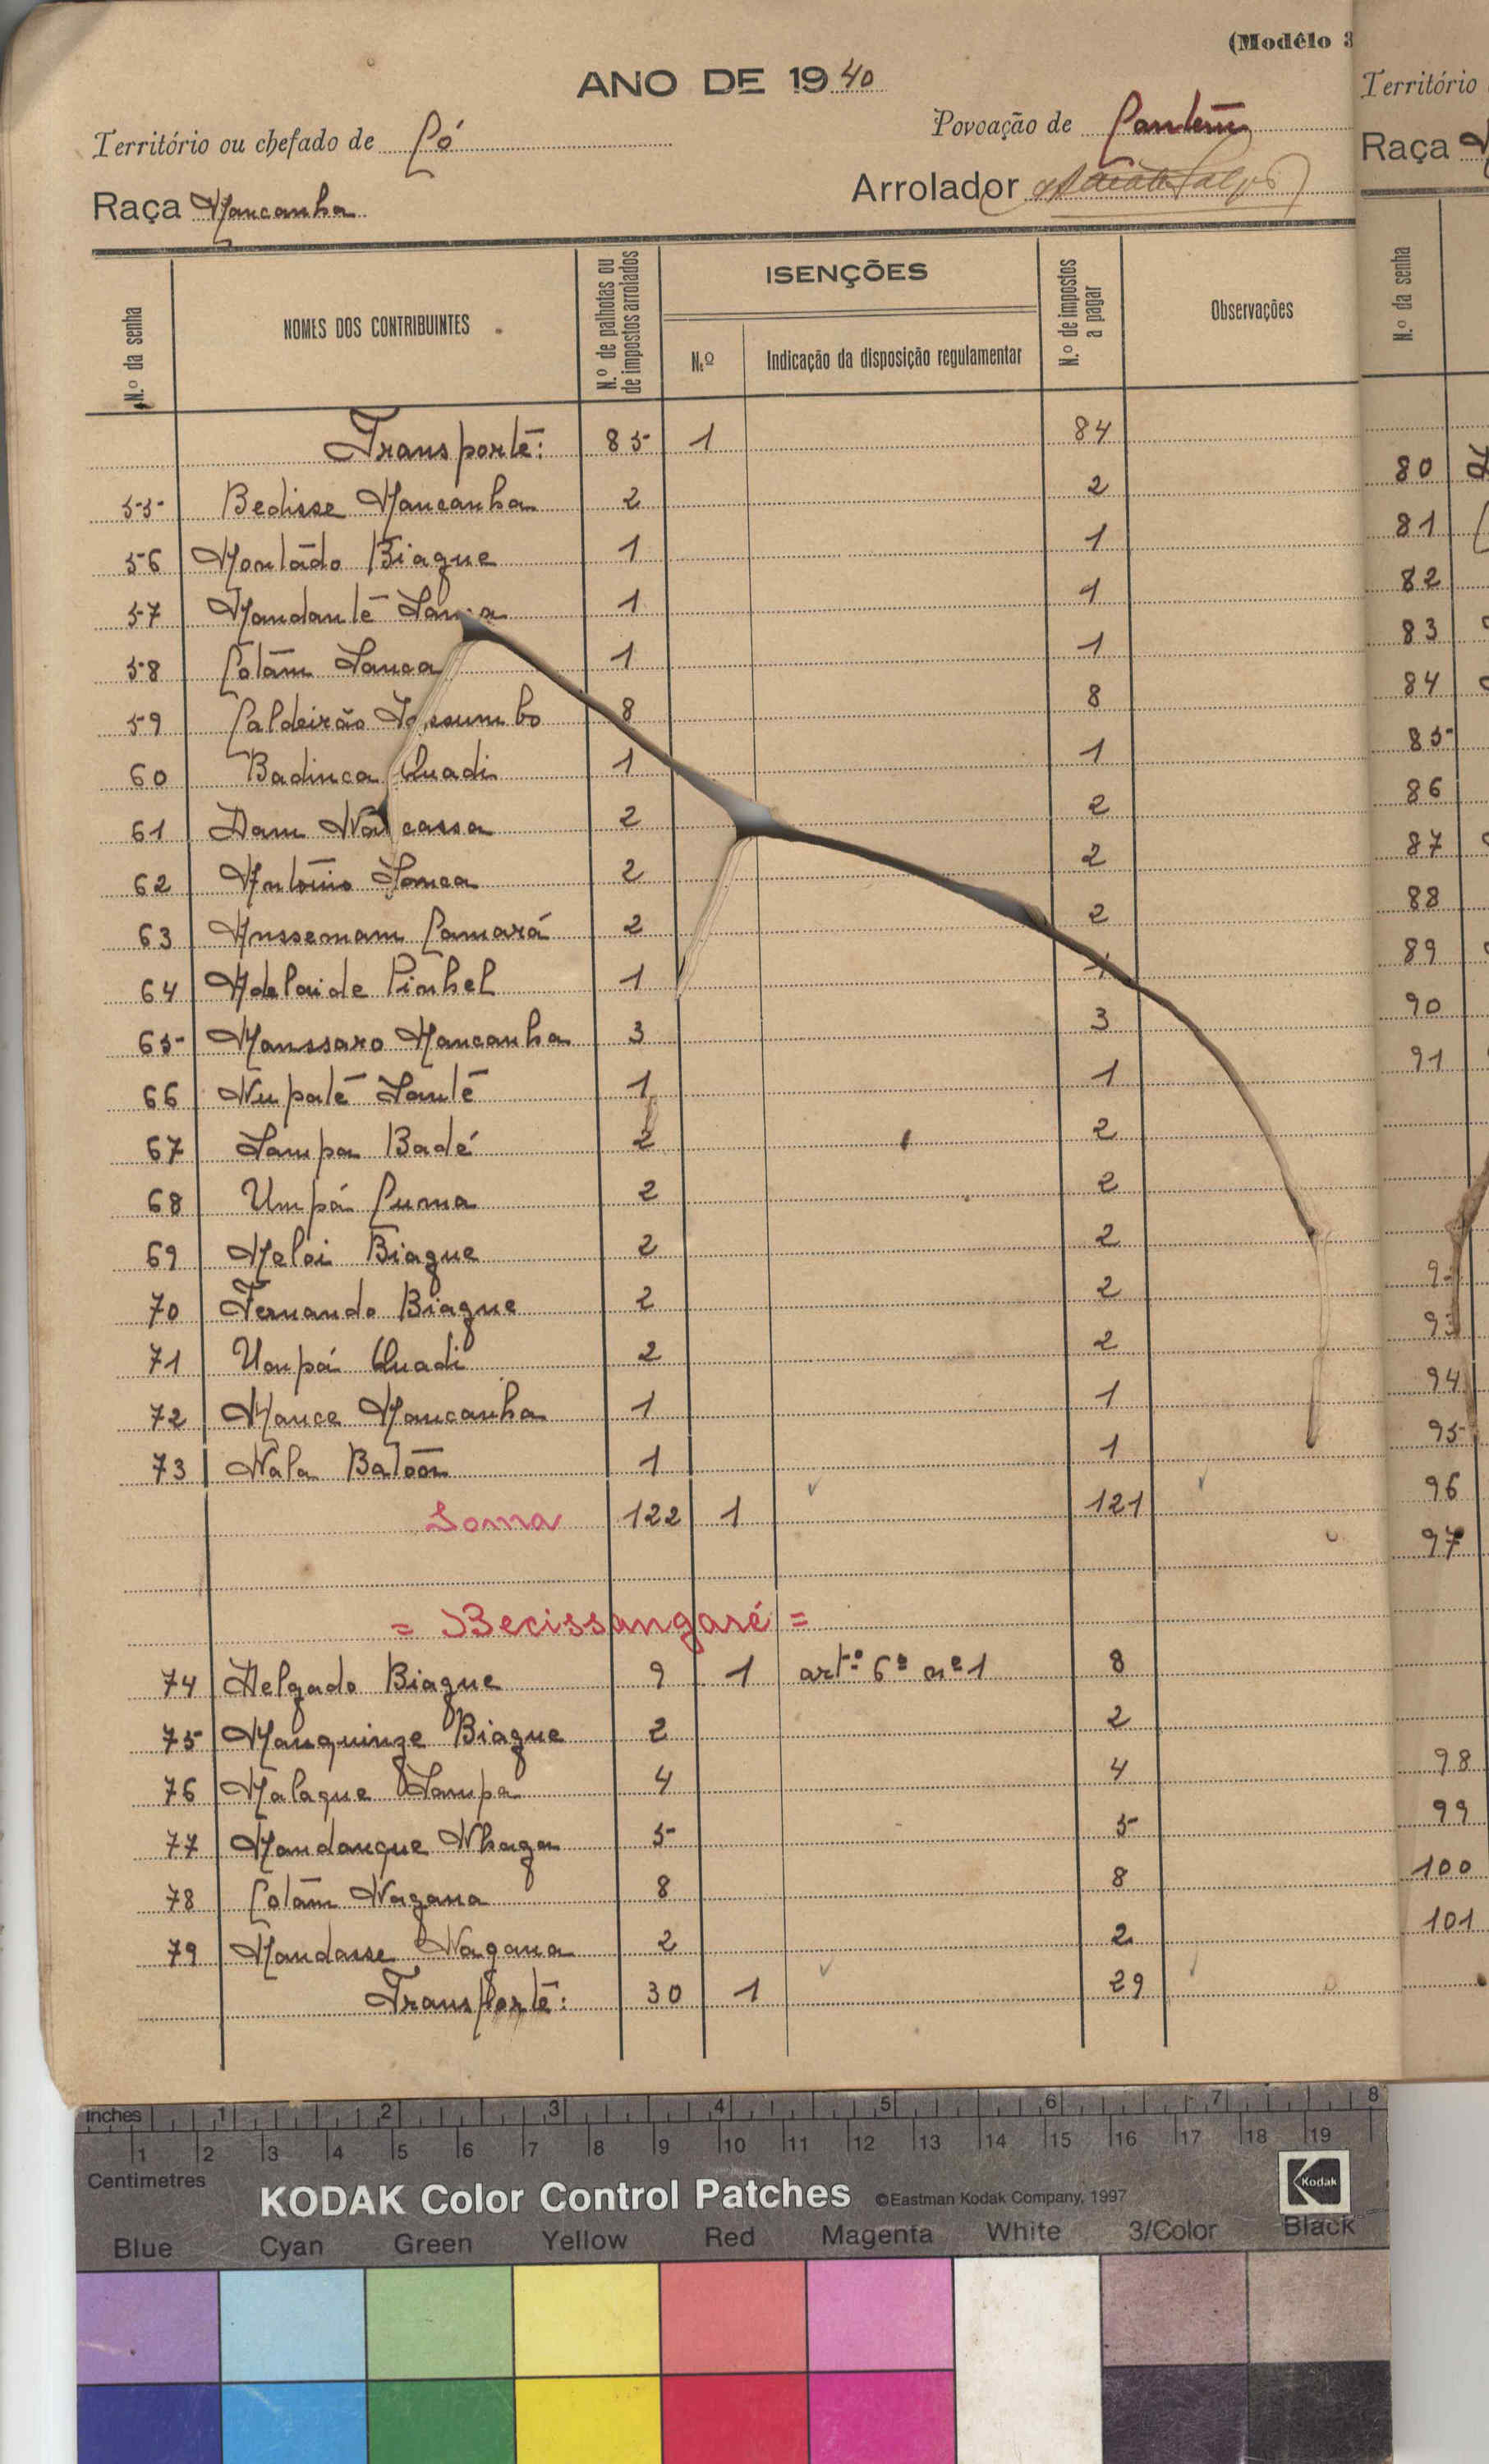 (Modêlo 3
ANO DE 1940
Território ou chefado de Có
Povoação de
Raça Mancanha
Arrolador
N.º da senha
NOMES DOS CONTRIBUINTES
N.º de palhotas ou de impostos arrolados
ISENÇÕES
N.º
Indicação da disposição regulamentar
N.º de impostos a pagar
Observações
Transporte: 85 1 84
55 Bedisse Mancanha 2 2
56 Montádo Biague 1 1
57 Mandanté 1 1
58 Cotam Sanca 1 1
59 Caldeirão 8 8
60 Badinca Quadi 1 1
61 Dam 2 2
62 António Sanca 2 2
63 Anssemam Camará 2 2
64 Adelaide Pinhel 1 1
65 Manssaro Mancanha 3 3
66 Nupaté Santé 1 1
67 Sampa Badé 2 2
68 Umpá Cuma 2 2
69 Meloi Biague 2 2
70 Fernando Biague 2 2
71 Umpá Quadi 2 2
72 Mance Mancanha 1 1
73 Nala Batóon 1 1
Soma 122 1 121
= Becissangaré =
74 Delgado Biague 9 1 artº 6º nº 1 8
75 Manquinze Biague 2 2
76 Malaque Sampa 4 4
77 Mandanque Nhaga 5 5
78 Cotam Nagana 8 8
79 Mandasse Nagana 2 2
Transporte: 30 1 29
Território
Raça
N.º da senha
80
81
82
83
84
85
86
87
88
89
90
91
93
94
95
96
97
98
99
100
101
inches 1 2 3 4 5 6 7 8
1 2 3 4 5 6 7 8 9 10 11 12 13 14 15 16 17 18 19
Centimetres
KODAK Color Control Patches ©Eastman Kodak Company, 1997 Kodak
Blue Cyan Green Yellow Red Magenta White 3/Color Black